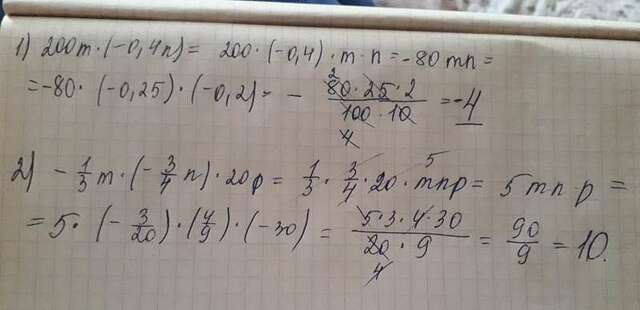 1) 200m·(-0,4n)= 200·(-0,4)·m·n=-80mn=
=-80·(-0,25)·(-0,2)= - \frac{80·25·2}{100·10} =-4
2) -\frac{1}{3}m·(-\frac{3}{4}n)·20p= \frac{1}{3}·\frac{3}{4}·20·mnp= 5mn·p =
= 5·(-\frac{3}{20})·(\frac{4}{9})·(-30) = \frac{5·3·4·30}{20·9} = \frac{90}{9} = 10.